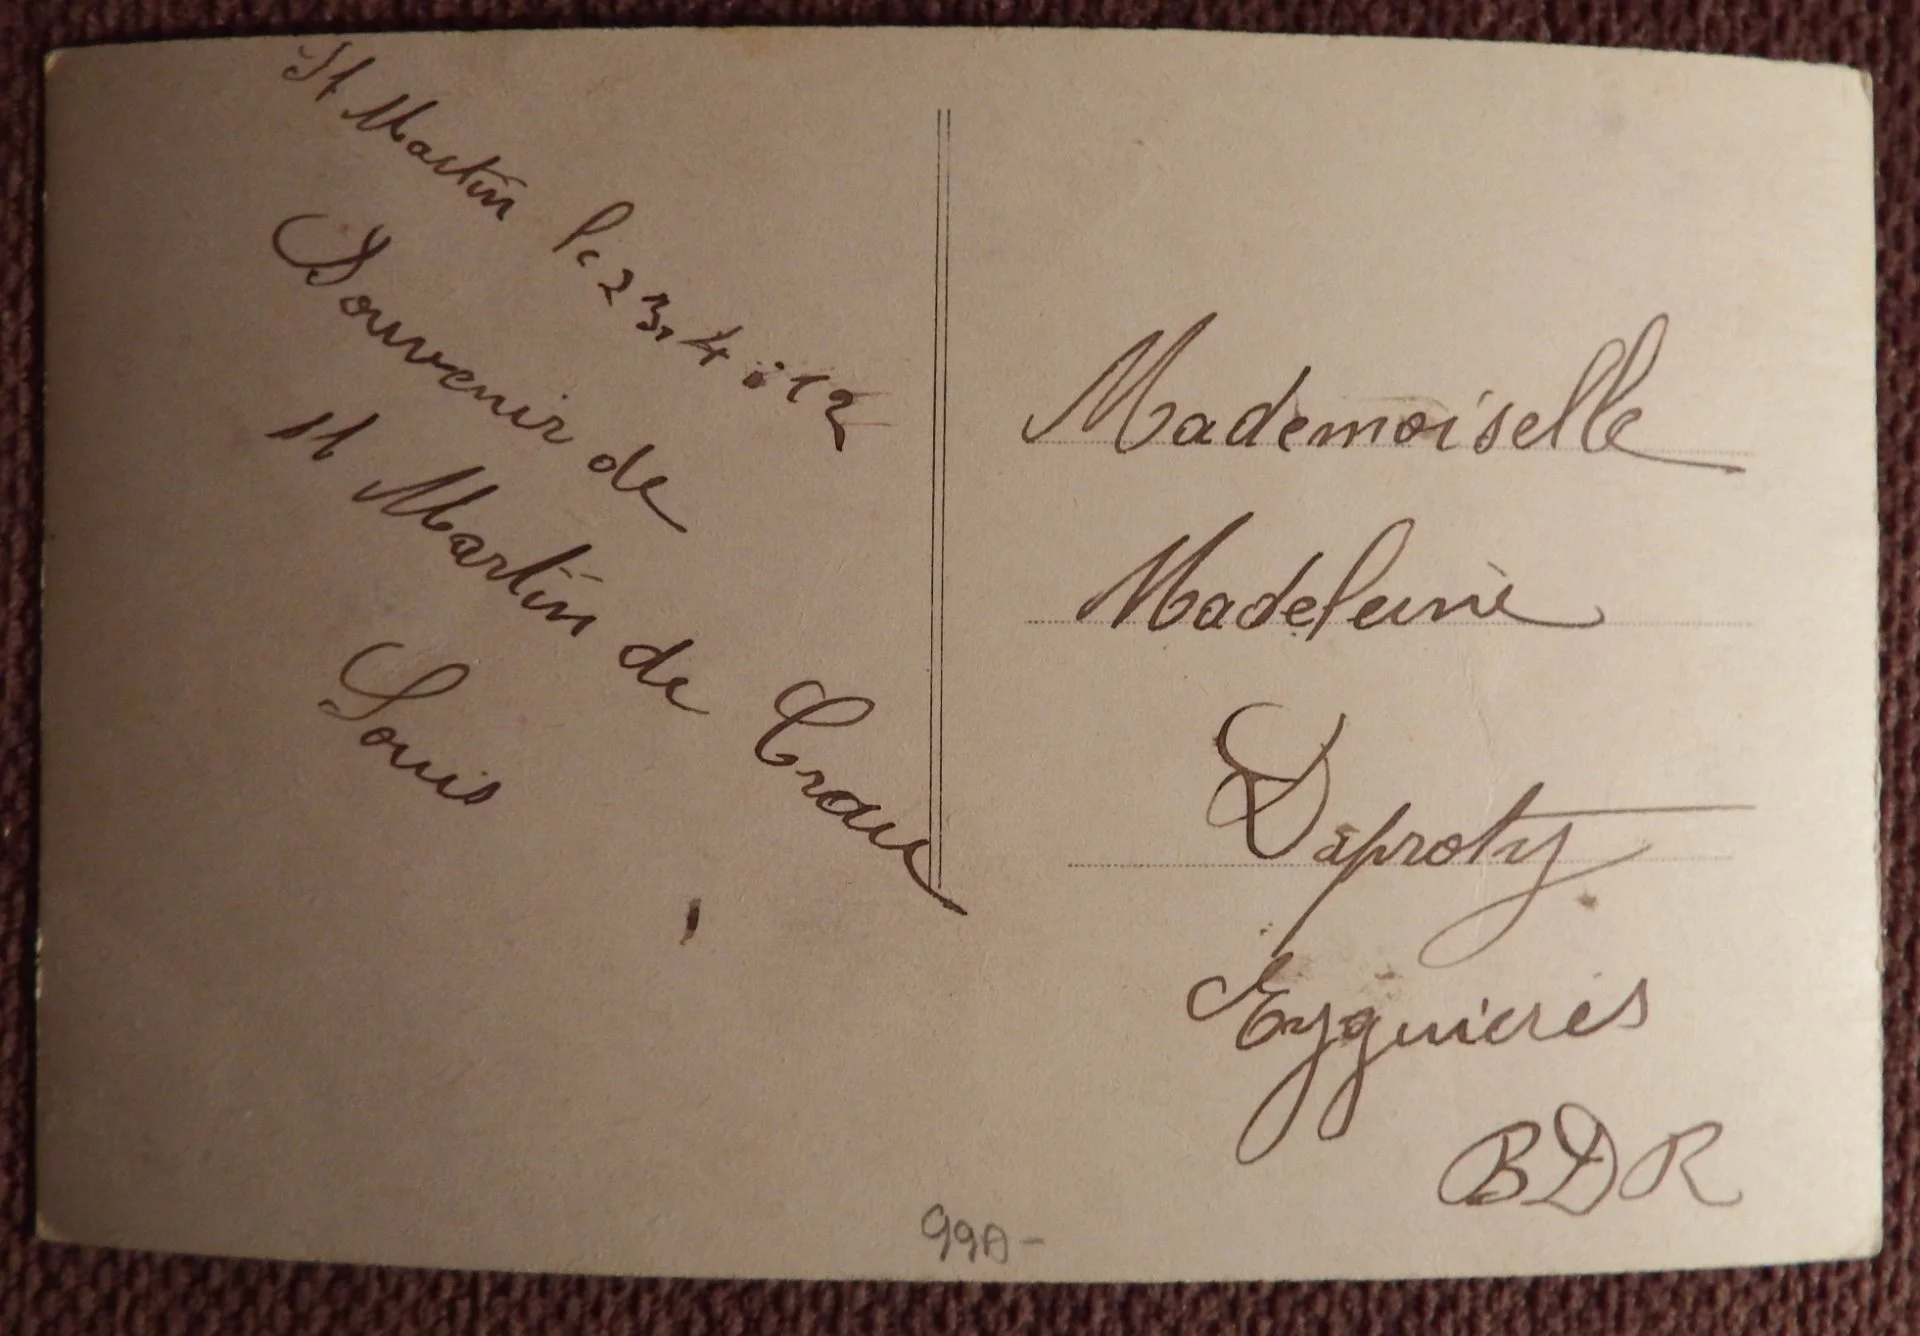 St Martin le 23.4.12
Souvenir de
St Martin de Crau
Louis
Mademoiselle
Madeleine
Daproty
Eyguieres
BDR
99A-